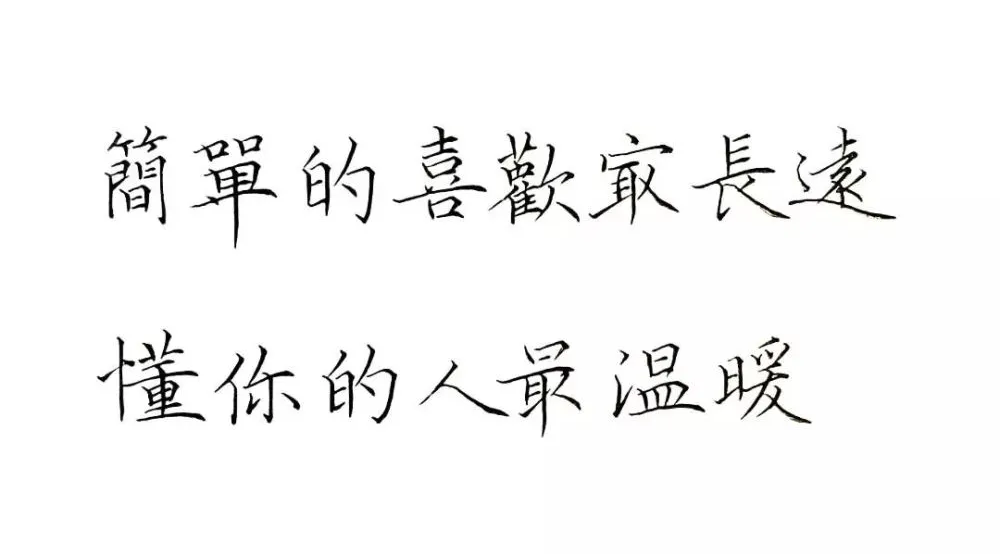 簡單的喜歡冣長遠
懂你的人最温暖